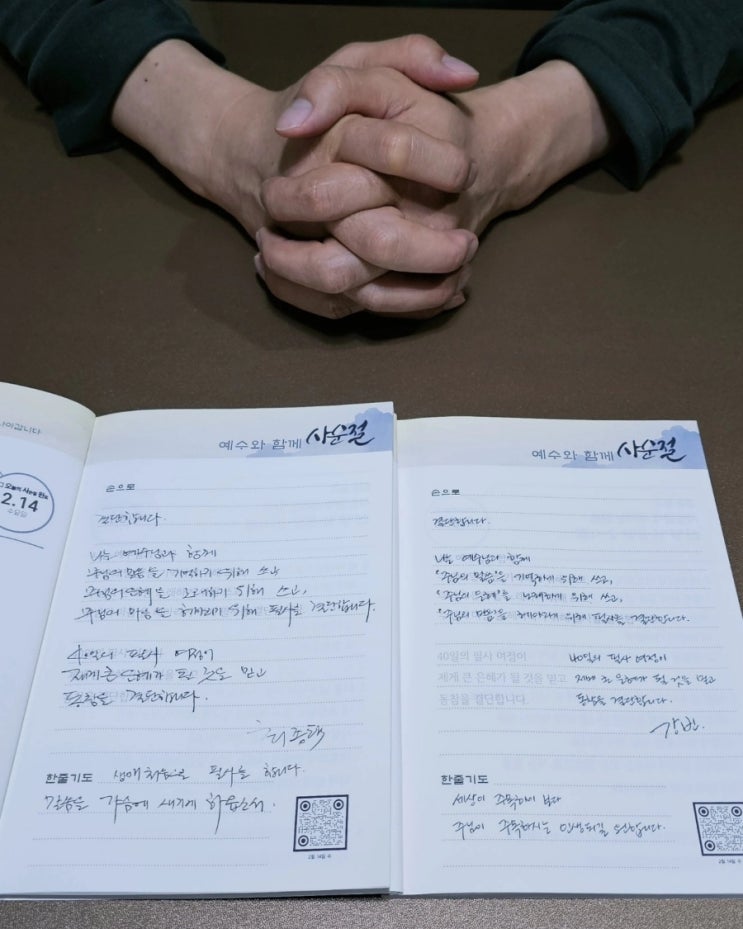 나아갑니다
2.14
수요일
예수와 함께 사순절
손으로
결단합니다.
나는 예수님과 함께
주님의 말씀을 기억하기 위해 쓰고
주님의 은혜를 노래하기 위해 쓰고,
주님의 마음을 헤아리기 위해 필사를 결단합니다.
40일의 필사 여정이
제게 큰 은혜가 될 것을 믿고
동참을 결단합니다.
한줄기도 생애 처음으로 필사를 합니다.
말씀을 가슴에 새기게 하옵소서.
2월 14일 수
예수와 함께 사순절
손으로
결단합니다.
나는 예수님과 함께
"주님의 말씀"을 기억하기 위해 쓰고,
"주님의 은혜"를 노래하기 위해 쓰고,
"주님의 마음"을 헤아리기 위해 필사를 결단합니다.
40일의 필사 여정이 40일의 필사 여정이
제게 큰 은혜가 될 것을 믿고 제게 큰 은혜가 될 것을 믿고
동참을 결단합니다. 동참을 결단합니다.
한줄기도
세상이 주목하기 보다
주님이 주목하시는 인생되길 원합니다.
2월 14일 수